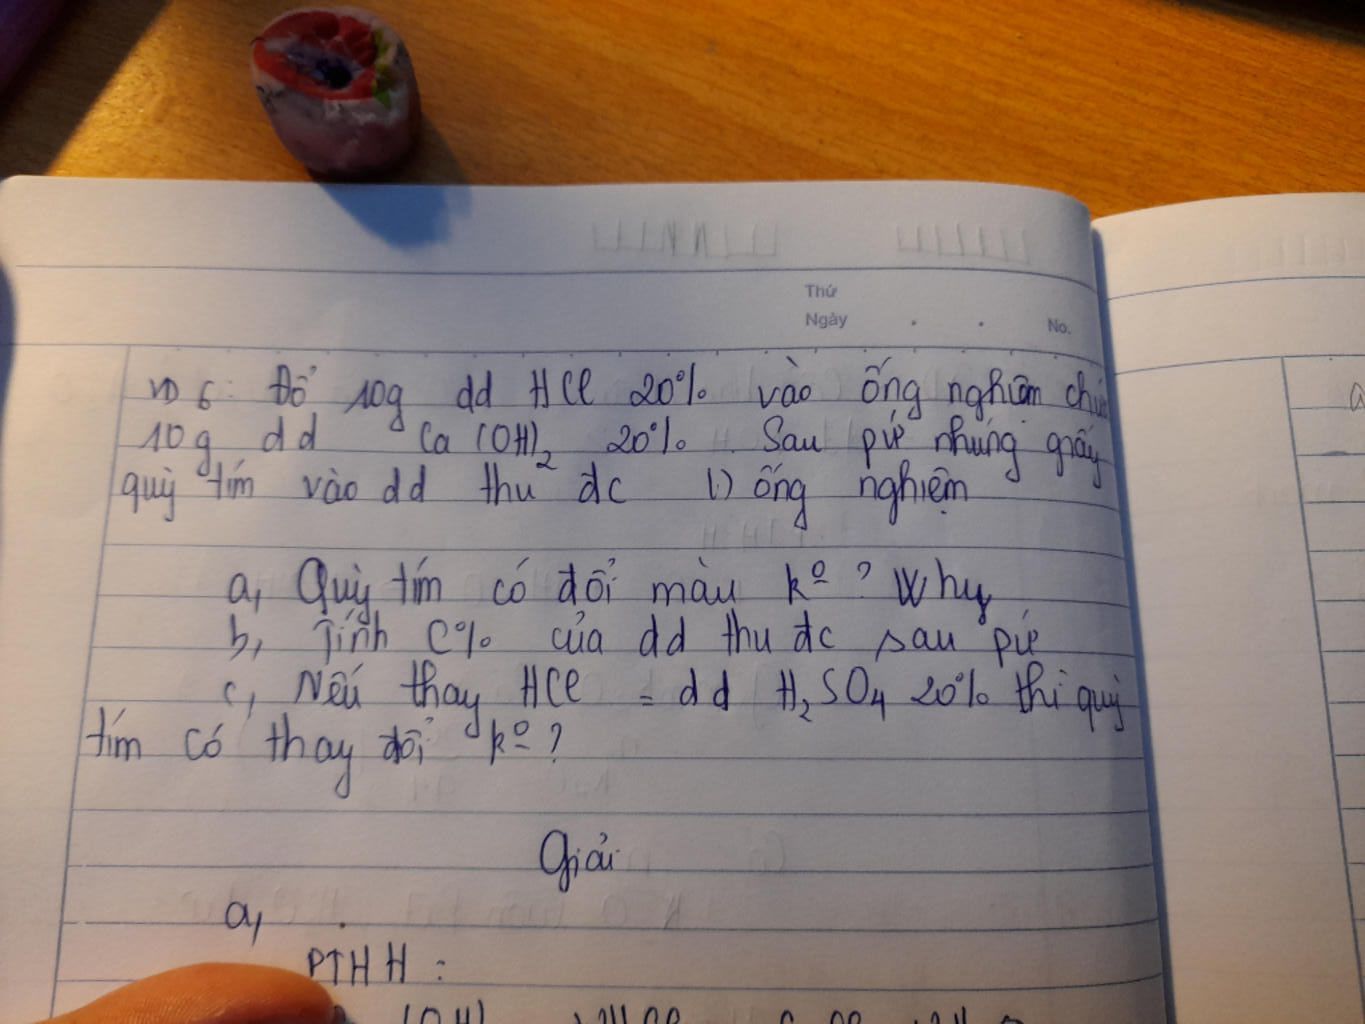 Thứ
Ngày . . No.
VD 6: Đổ 10g dd HCl 20% vào ống nghiệm
10g dd Ca(OH)₂ 20%. Sau pứ nhúng giấy
quỳ tím vào dd thu đc ống nghiệm
a, Quỳ tím có đổi màu kº? Why
b, Tính C% của dd thu đc sau pứ
c, Nếu thay HCl = dd H₂SO₄ 20% thì quỳ
tím có thay đổi kº?
Giải
a,
PTHH: